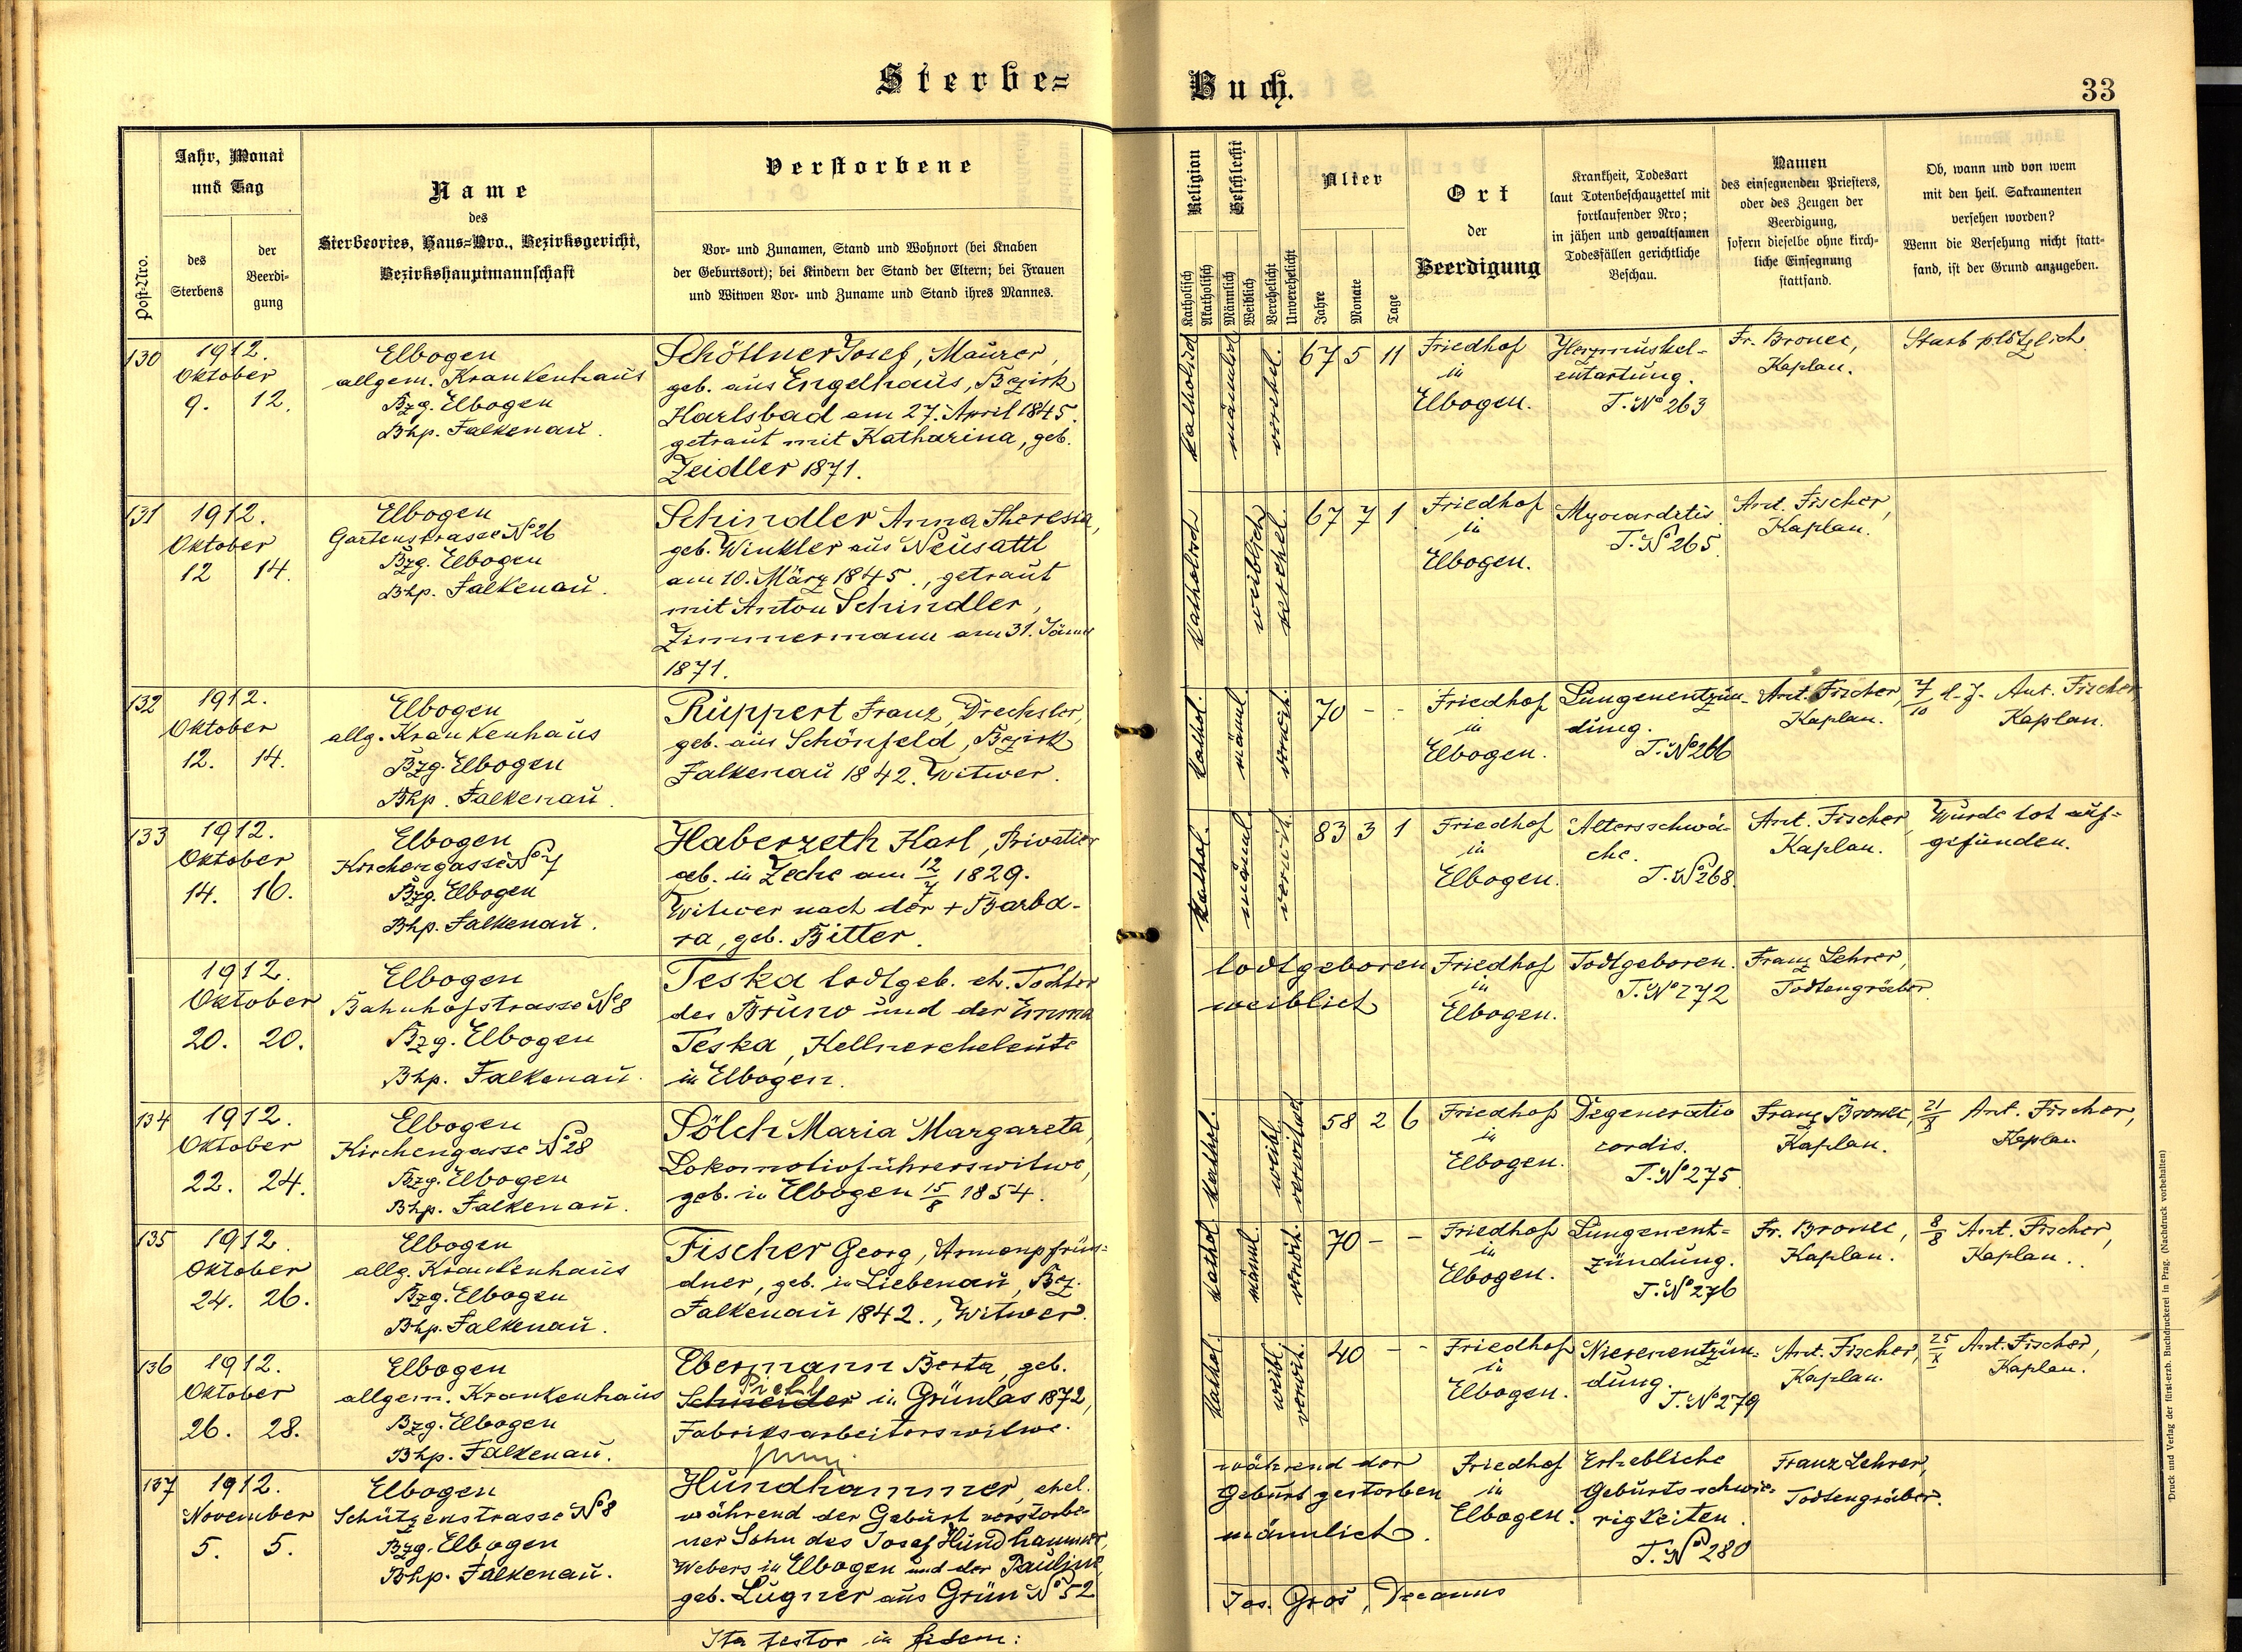 Sterbe=
Buch.
33
Post-Nro.
Jahr, Monat
und Tag
des
Sterbens
der
Beerdi-
gung
Name
des
Sterbeortes, Haus=Nro., Bezirksgericht,
Bezirkshauptmannschaft
Verstorbene
Vor- und Zunamen, Stand und Wohnort (bei Knaben
der Geburtsort); bei Kindern der Stand der Eltern; bei Frauen
und Witwen Vor- und Zuname und Stand ihres Mannes.
Religion
Katholisch
Akatholisch
Geschlecht
Männlich
Weiblich
Verehelicht
Unverehelicht
Alter
Jahre
Monate
Tage
Ort
der
Beerdigung
Krankheit, Todesart
laut Totenbeschauzettel mit
fortlaufender Nro;
in jähen und gewaltsamen
Todesfällen gerichtliche
Beschau.
Namen
des einsegnenden Priesters,
oder des Zeugen der
Beerdigung,
sofern dieselbe ohne kirch-
liche Einsegnung
stattfand.
Ob, wann und von wem
mit den heil. Sakramenten
versehen worden?
Wenn die Versehung nicht statt-
fand, ist der Grund anzugeben.
130
1912.
Oktober
9. 12.
Elbogen
allgem. Krankenhaus
Bzg. Elbogen
Bhp. Falkenau.
Schöttner Josef, Maurer,
geb. aus Engelhaus, Bezirk
Karlsbad am 27. April 1845.
getraut mit Katharina, geb.
Zeidler 1871.
katholisch
männlich
verehel.
67 5 11
Friedhof
in
Elbogen.
Herzmuskel-
entartung.
T. No 263
Fr. Bronec,
Kaplan.
Starb plötzlich
131
1912.
Oktober
12 14.
Elbogen
Gartenstrasse No 26
Bzg. Elbogen
Bhp. Falkenau.
Schindler Anna Theresia,
geb. Winkler aus Neusattl
am 10. März 1845., getraut
mit Anton Schindler,
Zimmermann am 31. Jänner
1871.
katholisch
weiblich
verehel.
67 7 1
Friedhof
in
Elbogen.
Myocarditis
T. No 265.
Ant. Fischer,
Kaplan.
132
1912.
Oktober
12. 14.
Elbogen
allg. Krankenhaus
Bzg. Elbogen
Bhp. Falkenau.
Ruppert Franz, Drechsler,
geb. aus Schönfeld, Bezirk
Falkenau 1842. Witwer.
kathol.
männl.
verwit.
70 - -
Friedhof
in
Elbogen.
Lungenentzün-
dung.
T. No 266
Ant. Fischer,
Kaplan.
7/10 d. J. Ant. Fischer
Kaplan.
133
1912.
Oktober
14. 16.
Elbogen
Kirchengasse No 7
Bzg. Elbogen
Bhp. Falkenau.
Haberzeth Karl, Privatier
geb. in Zeche am 12/7 1829.
Witwer nach der + Barba-
ra, geb. Bitter.
kathol.
männl.
verwit.
83 3 1
Friedhof
in
Elbogen.
Altersschwä-
che.
T. No 268.
Ant. Fischer
Kaplan.
Wurde tot auf-
gefunden.
1912.
Oktober
20. 20.
Elbogen
Bahnhofstrasse No 8
Bzg. Elbogen
Bhp. Falkenau.
Teska todtgeb. eh. Tochter
des Bruno und der Emma
Teska, Kellnereheleute
in Elbogen.
todtgeboren
weiblich
Friedhof
in
Elbogen.
Todtgeboren.
T. No 272
Franz Lehrer,
Todtengräber.
134
1912.
Oktober
22. 24.
Elbogen
Kirchengasse No 28
Bzg. Elbogen
Bhp. Falkenau.
Pölch Maria Margareta,
Lokomotivführerswitwe,
geb. in Elbogen 15/8 1854.
kathol.
weibl.
verwitwet
58 2 6
Friedhof
in
Elbogen.
Degeneratio
cordis.
T. No 275.
Franz Bronec,
Kaplan.
21/X Ant. Fischer,
Kaplan
135
1912.
Oktober
24. 26.
Elbogen
allg. Krankenhaus
Bzg. Elbogen
Bhp. Falkenau.
Fischer Georg, Armenpfrün-
dner, geb. in Liebenau, Bez.
Falkenau 1842., Witwer.
kathol
männl.
verwit.
70 - -
Friedhof
in
Elbogen.
Lungenent-
zündung.
T. No 276
Fr. Bronec,
Kaplan.
8/8 Ant. Fischer,
Kaplan.
136
1912.
Oktober
26. 28.
Elbogen
allgem. Krankenhaus
Bzg. Elbogen
Bhp. Falkenau.
Ebermann Berta, geb.
Schneider in Grünlas 1872,
Fabriksarbeiterswitwe.
kathol.
weibl.
verwit.
40 - -
Friedhof
in
Elbogen.
Nierenentzün-
dung.
T. No 279
Ant. Fischer,
Kaplan.
25/X Ant. Fischer,
Kaplan.
137
1912.
November
5. 5.
Elbogen
Schützenstrasse No 8
Bzg. Elbogen
Bhp. Falkenau.
Hundhammer, ehel.
während der Geburt verstorbe-
ner Sohn des Josef Hundhammer,
Webers in Elbogen und der Pauline,
geb. Lugner aus Grün No 52
während der
Geburt gestorben
männlich.
Friedhof
in
Elbogen.
Erhebliche
Geburtsschwie-
rigkeiten.
T. No 280
Franz Lehrer,
Todtengräber.
Ita testor in fidem:
Jos. Groš, Decanus
Druck und Verlag der fürst-erzb. Buchdruckerei in Prag. (Nachdruck vorbehalten)